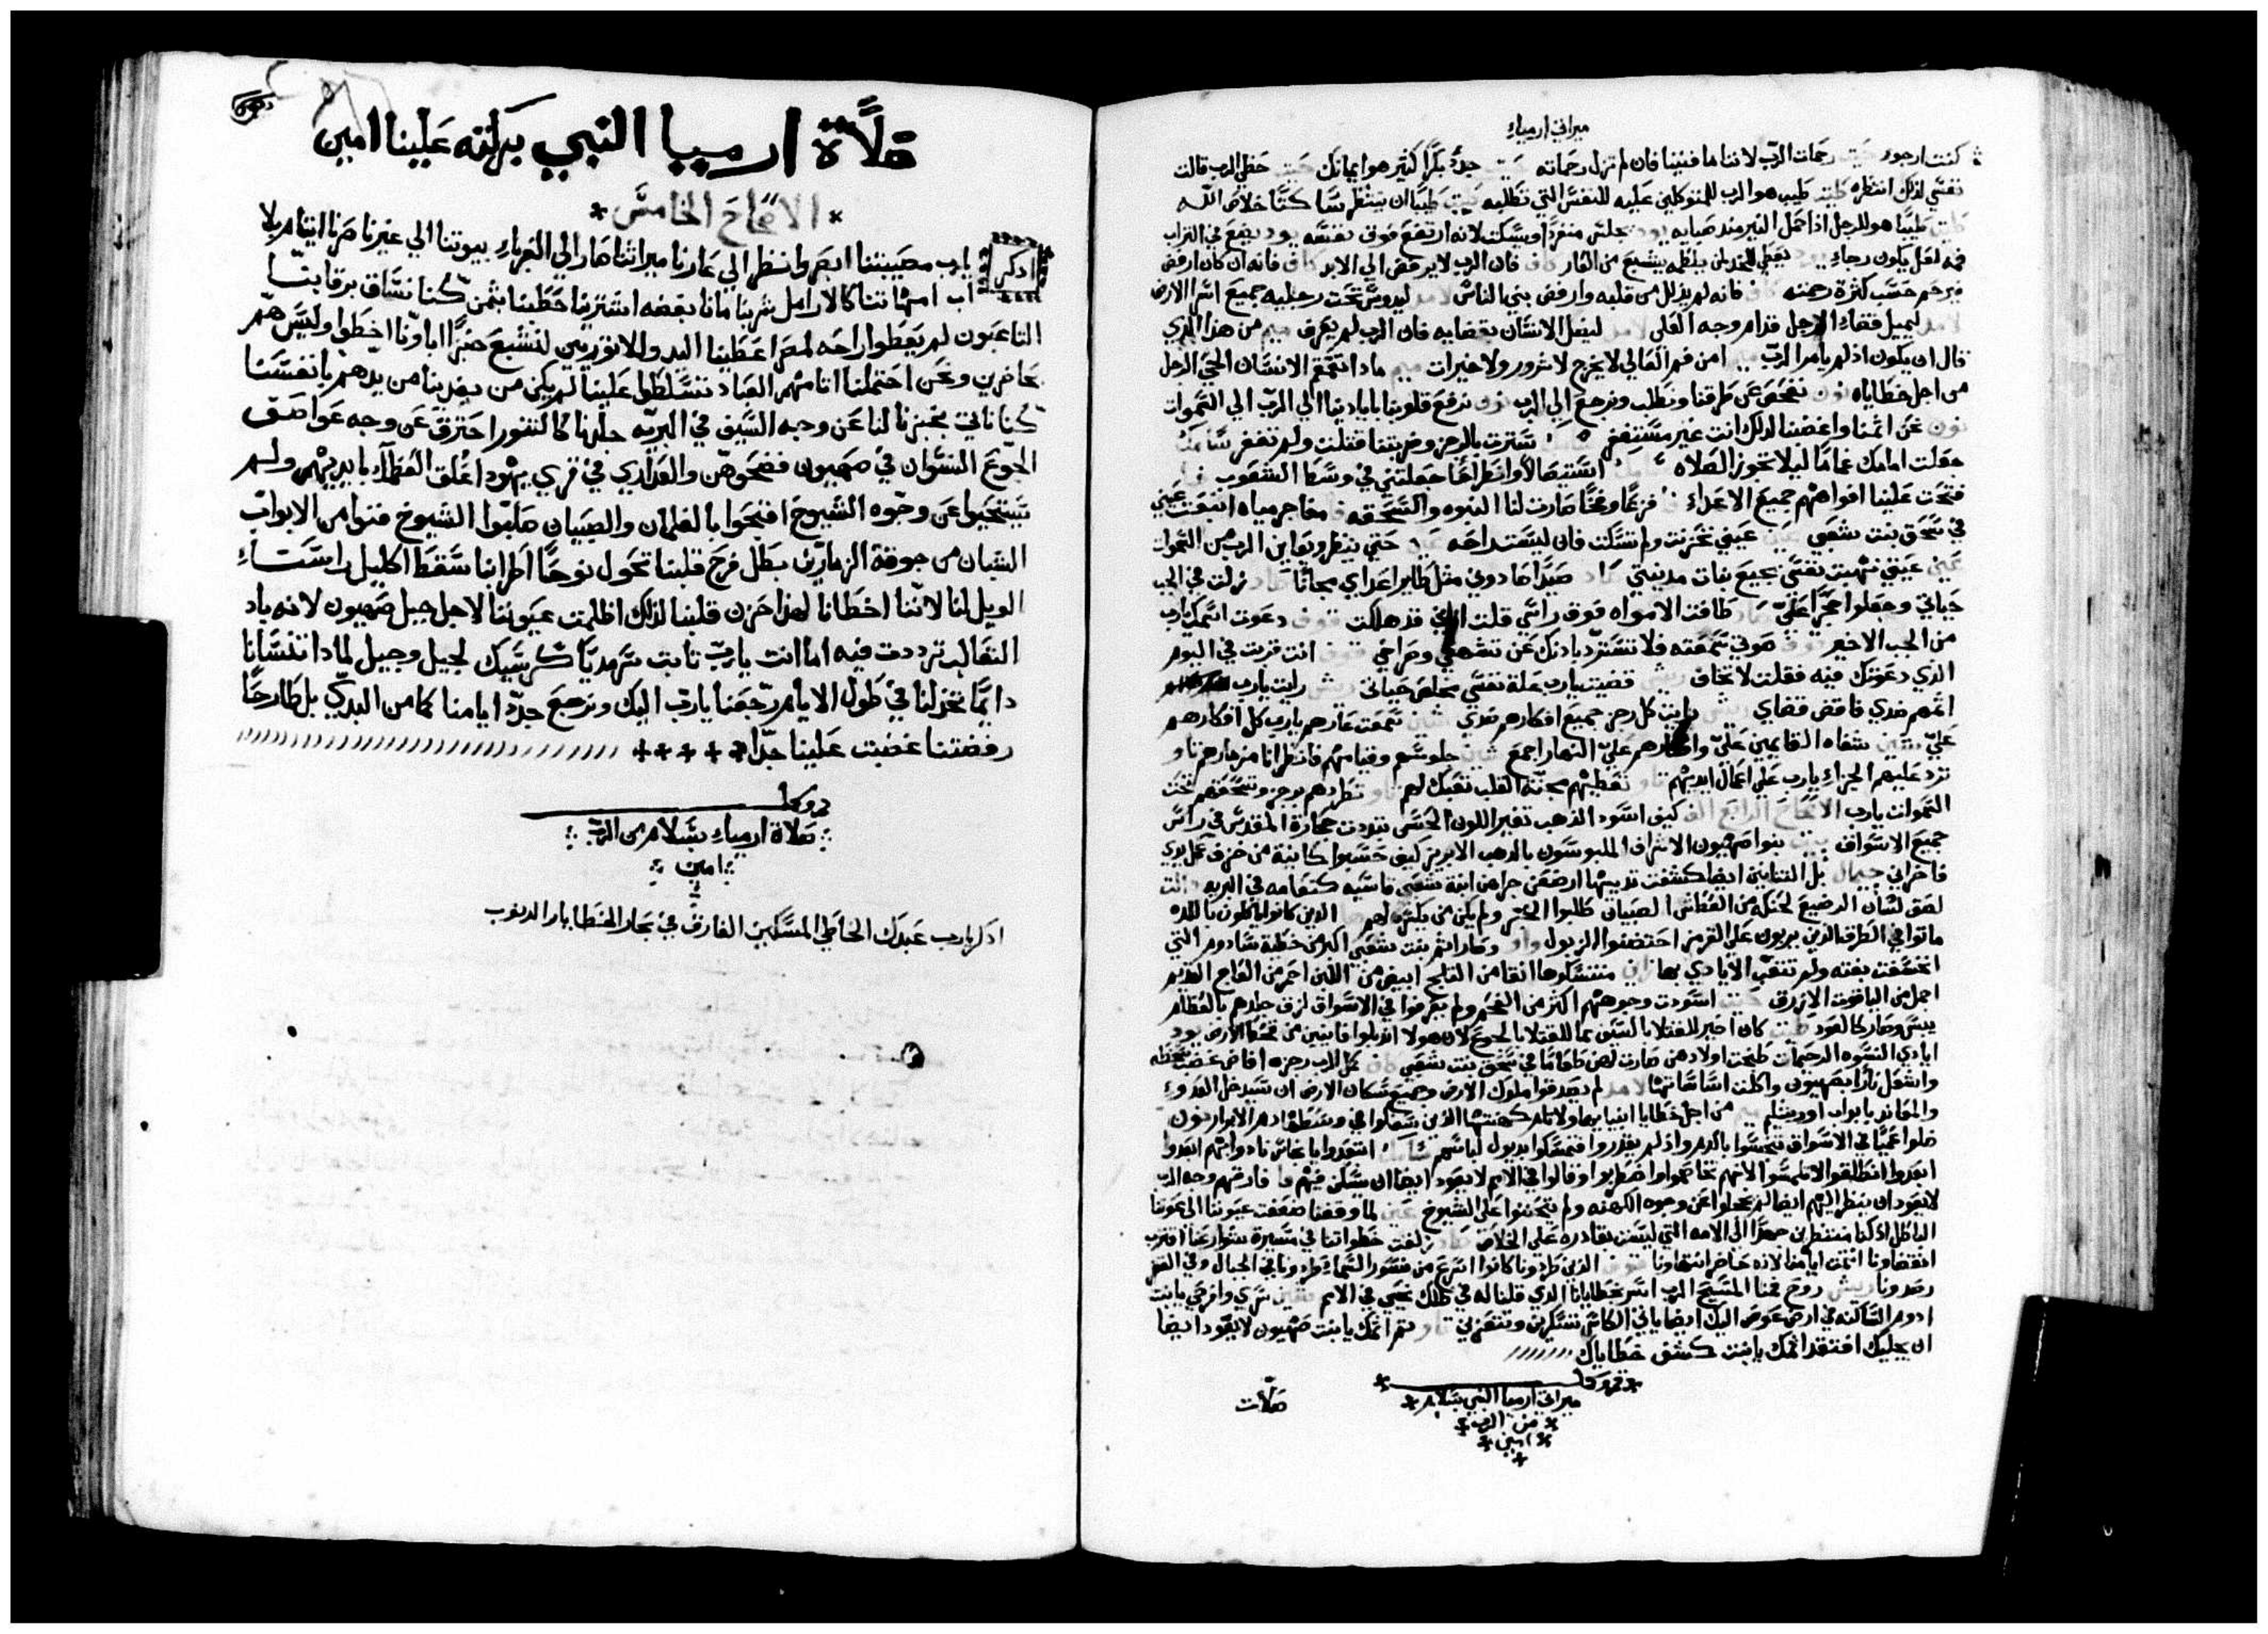 ميراتي ارمياء
كنت ارجوه حيت رحمات الرب لاننا ما فنينا فان لم تزل رحماته حيت جدد بكرًا كثير هو ايمانك حيت حظي الرب قالت
نفسي لذلك انتظره طيت طيب هو الرب للمتوكلين عليه للنفس التي تطلبه طيت طيبًا ان ينتظر ساكتًا خلاص الله
طيت طيبًا هو للرجل اذا حمل النير منذ صبايه يود يجلس منفردًا ويسكت لانه ارتفع فوق نفسه يود يضع في التراب
فمه لعل يكون رجاء يود يعطي للخد لمن يلطمه يشبع من العار كاف فان الرب لا يرفض الي الابد كاف فانه ان كان ارفض
فيرحم حسب كثرة رحمته كاف فانه لم يذلل من قلبه وارفض بني الناس لامد ليدوس تحت رجليه جميع اسرا الارض
لامد ليميل قضاء الرجل قدام وجه العلي لامد ليضل الانسان بقضايه فان الرب لم يعرف ميم من هذا الذي
قال ان يكون اذ لم يامر الرب ميم امن فم العالي لا يخرج لا شرور ولا خيرات ميم ماذا تقمقم الانسان الحي الرجل
من اجل خطاياه نون نفحص عن طرقنا ونطلب ونرجع الي الرب نون نرفع قلوبنا بايادينا الي الرب الي السموات
نون نحن اثمنا واغضبنا لذلك انت غير مستغفر سترت بالرجز وضربتنا قتلت ولم تغفر
جعلت امامك غمامًا ليلا تجوز الصلاه جعلتني في وسط الشعوب
فتحت علينا افواههم جميع الاعداء فا فزعًا وفخًا صارت لنا النبوه والسحقه فا مفاجر مياه انبعت عيني
في سحق بنت شعبي عين عيني تحزنت ولم تسكت فان ليست راحه عين حتي ينظر ويعاين الرب من السموات
عين عيني نهبت نفسي بجميع بنات مدينتي صاد صيدًا صادوني مثل طاير اعداي مجانًا صاد زلت في الجب
حياتي وجعلوا حجرًا علي صاد طافت الامواه فوق راسي قلت قد هلكت قوف دعوت اسمك يارب
من الجب الاخير قوف صوتي سمعته فلا تسترد باذنك عن تنهدي وصراخي قوف انت قربت في اليوم
الذي دعوتك فيه فقلت لا تخاف ريش قضيت يارب علة نفسي مخلص حياتي ريش رايت يارب
اثمهم ضدي فاقض قضاي ريش رايت كل رجز جميع افكارهم ضدي شين سمعت عارهم يارب كل افكارهم
علي شين شفاه القايمين علي وافكارهم علي النهار اجمع شين جلوسهم وقيامهم فانظر انا مزمارهم تاو
ترد عليهم الجزاء يارب علي اعمال ايديهم تاو تعطيهم مجنة القلب تعبك لهم تاو تطردهم برجز وتسحقهم تحت
السموات يارب الاصحاح الرابع الف كيف اسود الذهب تغير اللون الحسن تبددت حجارة المقدس في راس
جميع الاسواق بيت بنوا صهيون الاشراف الملبوسون بالذهب الابريز كيف حسبوا كانية من خزف عمل يدي
فاخراني جمال بل التنانين ايضا كشفت ثدييها ارضعن جراهن ابنة شعبي قاسية كنعامه في البريه دالت
لصق لسان الرضيع لحنكه من العطش الصبيان طلبوا الخبز ولم يكن من يكسره لهم ها الذين كانوا ياكلون باللذه
ماتوا في الطرق الذين يربون علي القرمز احتضنوا الزبول واو وصار اثم بنت شعبي اكبر من خطية سادوم التي
انخسفت بغته ولم تتعب الايادي بها زين متنسكوها انقا من الثلج ابيض من اللبن احمر من العاج القديم
اجمل من الياقوت الازرق حيت اسودت وجوههم اكثر من الفحم ولم يعرفوا في الاسواق لزق جلدهم بالعظام
يبس وصار كالعود طيت كان اخير للقتلا بالسيف مما للقتلا بالجوع لان هولا
ايادي النسوه الرحيمات طبخت اولادهن صارت لهن طعامًا في سحق بنت شعبي كاف كمل الرب رجزه افاض غضب سخطه
واشعل نارًا بصهيون واكلت اساساتها لامد لم يصدقوا ملوك الارض وجميع سكان الارض ان سيدخل العدو
والمعاند بابواب اورشليم ميم من اجل خطايا انبيايها واثام كهنتها الذين سفكوا في وسطها دم الابرار نون
ضلوا عميًا في الاسواق تنجسوا بالدم واذ لم يقدروا فتمسكوا بديول لباسهم سامك ابتعدوا يا نجاس نادوا لهم ابعدوا
ابعدوا انطلقوا لا تلمسوا لانهم تخاصموا واضطربوا وقالوا في الامم لا يعود ايضا ان يسكن فيهم فا فارقهم وجه الرب
لا يعود ان ينظر اليهم ايضا لم يخجلوا عن وجوه الكهنه ولم يتحننوا علي الشيوخ عين لما وقفنا ضعفت عيوننا الي عوننا
الباطل اذ كنا منتظرين جهدًا الي الامه التي ليست بقادره علي الخلاص صاد زلقت خطواتنا في مسيرة شوارعنا اقترب
انقضاونا انتمت ايامنا لانه حاضر انتهاونا قوف الذين طردونا كانوا اسرع من نسور السماء طردونا في الجبال وفي القفر
رصدونا ريش روح فمنا المسيح الرب اسر بخطايانا الذي قلنا له في ظلك نحيي في الامم شين سري وافرحي يا بنت
ادوم الساكنه في ارض عوص اليك ايضا ياتي الكاس تسكرين وتتعرين تاو تم اثمك يا بنت صهيون لا يعود ايضا
ان يجليك افتقد اثمك يا بنت كشف خطاياك
ميراتي ارميا النبي بسلام
من الرب
امين
صلات
صلاة ارميا النبي بركته علينا امين
الاصحاح الخامس
اذكر يارب مصيبتنا ابصر وانظر الي عارنا ميراثنا صار الي الغرباء بيوتنا الي غيرنا صرنا ايتام بلا
اب امهاتنا كالارامل شربنا مانا بفضه اشترينا حطبنا بثمن كنا نساق برقابنا
التاعبون لم يعطوا راحه لمصر اعطينا اليد والاثوريين لنشبع خبزًا اباونا اخطوا وليس هم
بحاضرين ونحن احتملنا اثامهم العباد تسلطوا علينا لم يكن من يفدينا من يدهم بانفسنا
كنا ناتي بخبزنا لنا عن وجه السيف في البريه جلدنا كالتنور احترق عن وجه عواصف
الجوع النسوان في صهيون فضحوهن والعذاري في قري يهودا علق العظماء بايديهم ولم
يستحيوا عن وجوه الشيوخ افتحوا بالغلمان والصبيان صلبوا الشيوخ فنوا من الابواب
الشبان من جوقة الزمارين بطل فرح قلبنا تحول نوحًا اطرابنا سقط اكليل راسنا
الويل لنا لاننا اخطانا لهذا حزن قلبنا لذلك اظلمت عيوننا لاجل جبل صهيون لانه باد
الثعالب ترددت فيه اما انت يارب ثابت سرمديًا كرسيك لجيل وجيل لماذا تنسانا
دايمًا تخذلنا في طول الايام رجعنا يارب اليك ونرجع جدد ايامنا كما من البدي بل طارحًا
رفضتنا غضبت علينا جدًا
صلاة ارمياء بسلام من الرب
امين
اذكر يارب عبدك الخاطي المسكين الغارق في بحار الخطايا والذنوب